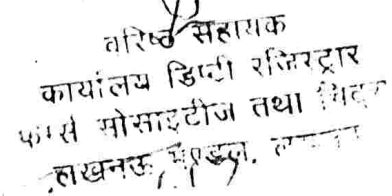 वरिष्ठ सहायक
कार्यालय डिप्टी रजिस्ट्रार
फर्म्स सोसाइटीज तथा चिट्स
लखनऊ मण्डल, लखनऊ